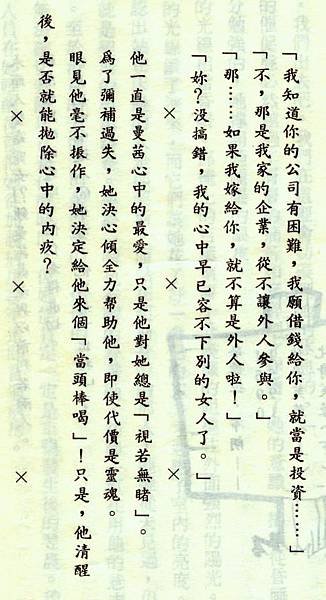 「我知道你的公司有困難，我願借錢給你，就當是投資……」
「不，那是我家的企業，從不讓外人參與。」
「那……如果我嫁給你，就不算是外人啦！」
「妳？没搞錯，我的心中早已容不下別的女人了。」
× × ×
他一直是曼茜心中的最愛，只是他對她總是「視若無睹」。
為了彌補過失，她決心傾全力幫助他，即使代價是靈魂。
眼見他毫不振作，她決定給他來個「當頭棒喝」！只是，他清醒
後，是否就能拋除心中的內疚？
× × ×